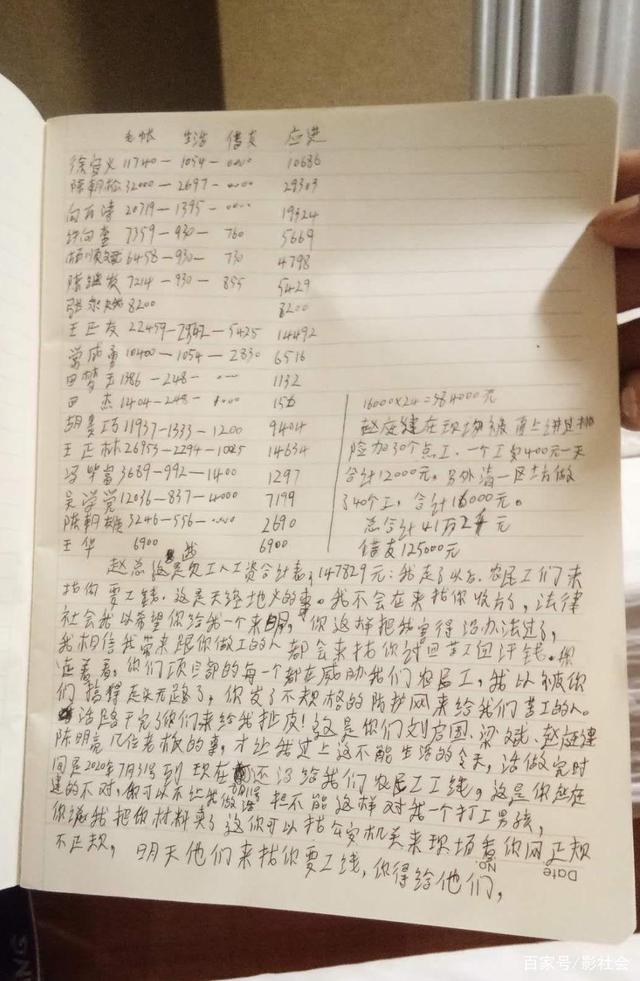 毛帐 生活 借支 应进
徐宜义 11740 — 1054 — 0000 10686
陈朝松 32000 — 2697 — 0000 29303
向石涛 20719 — 1395 — 0000 19324
向奎 7359 — 930 — 760 5669
顺斌 6458 — 930 — 730 4798
陈继发 7214 — 930 — 855 5429
张 8200 8200
王正友 22459 — 2542 — 5425 14492
常成勇 10400 — 1054 — 2830 6516
田梦王 1386 — 248 — 1132
田 杰 1404 — 248 — 0000 156
胡美巧 11937 — 1333 — 1200 9404
王正林 26953 — 2294 — 1025 14634
冯华富 3689 — 992 — 1400 1297
吴学党 12036 — 837 — 4000 7199
陈朝雄 3246 — 556 — 2690
王 华 6900 6900
16000×24=384000元
赵庭建在现场被 直上讲且排
险加30个点工.一个工资400元一天
合计12000元,另外清一区钻做
了40个工,合计16000元。
总合计41万2千元
借支125000元
赵总这是员工人工资合计表,147829元:我走了以后.农民工们来
找你要工钱.这是天经地义的事。我不会在来找你收方了,法律
社会我以希望你给我一个来明,你这样把我害得没办法过了,
我相信我带来跟你做工的人都会来找你讨回苦工血汗钱.
连着看,你们项目部的每一个都在威胁我们农民工,我以被你
们搞得走头无路了,你发了不规格的防护网来给我们苦工的人。
活路干完了你们来给我扯皮!这是你们刘启国、梁斌、赵庭建
陈明亮几位老板的事,才让我过上这不能生活的今天,活做完时
间是2020年7月31号到现在还没给我们农民工工钱,这是你赵庭
建的不对,你可以不让我做活 把不能这样对我一个打工男孩,
你逼我把你材料卖了这你可以找公安机关来现场看你网正规
不正规,明天他们来找你要工钱,你得给他们,
No.
Date
百家号/影社会